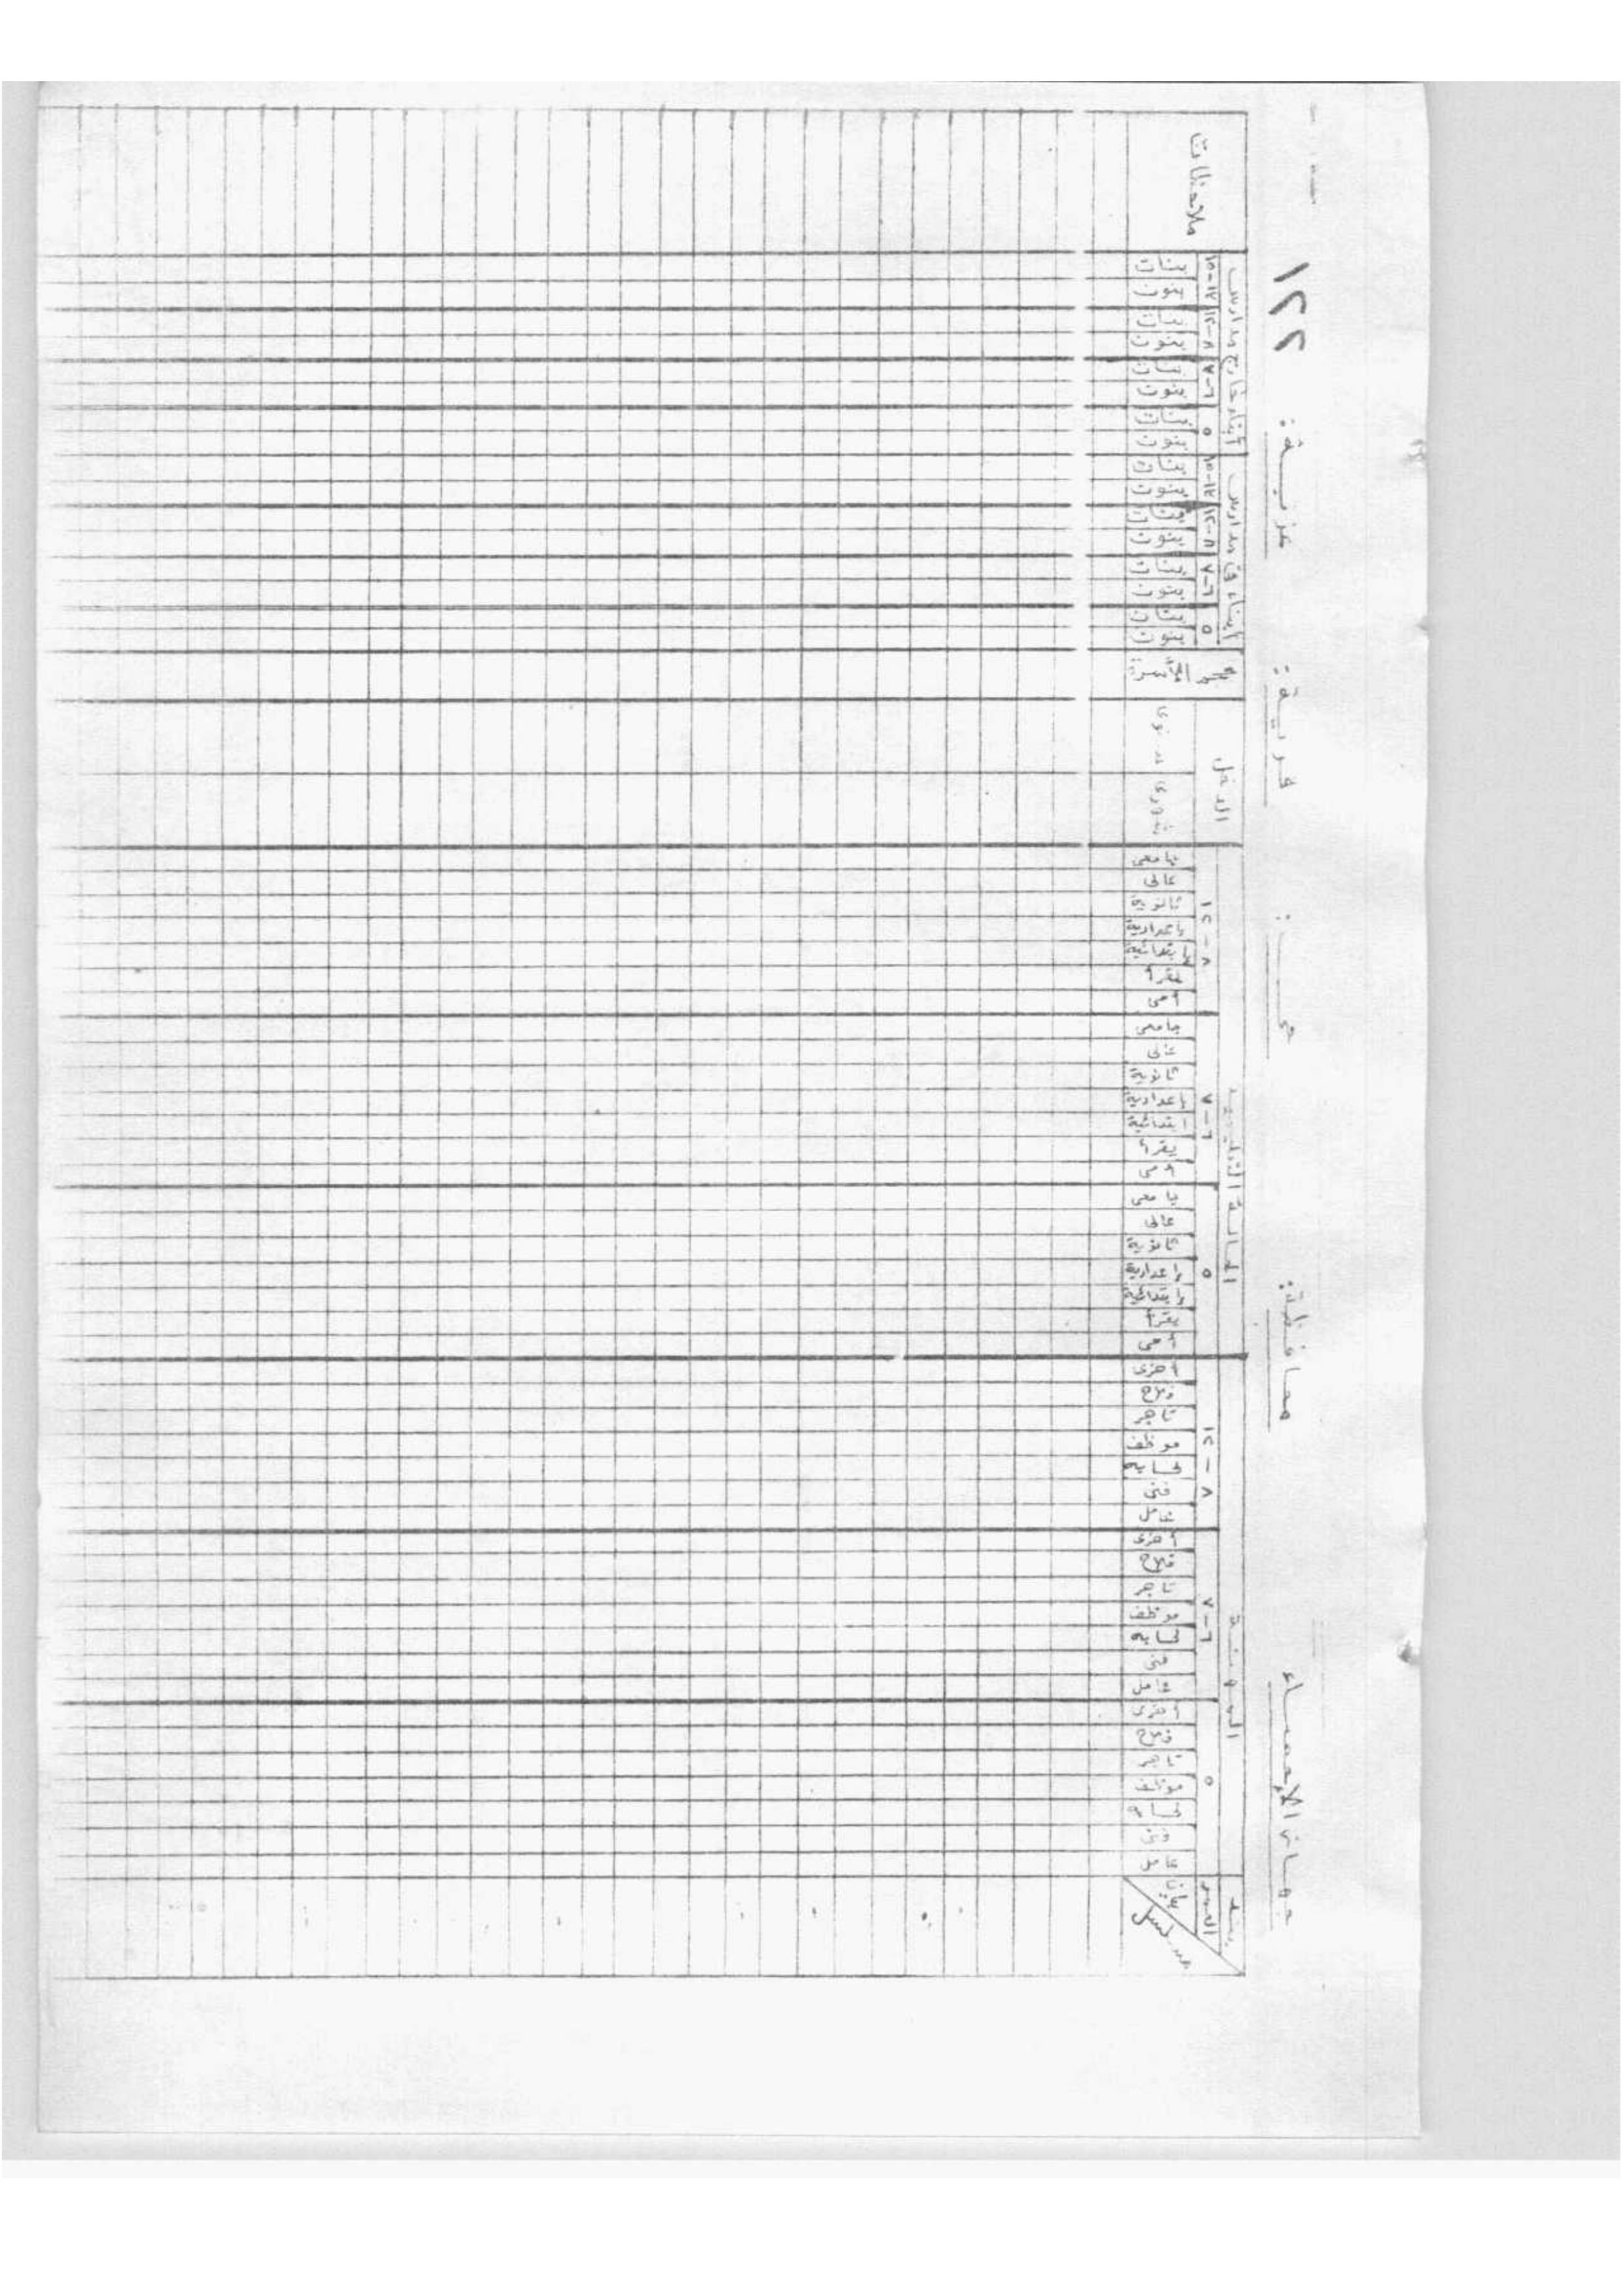 جهاز الإحصاء محافظة: حى: قرية: عزبة: ١٢٢
بند المهنة الحالة التعليمية الدخل حجم الأسرة أبناء في مدارس أبناء خارج مدارس ملاحظات
العمر ٥ ٦-٧ ٨-١٢ ٥ ٦-٧ ٨-١٢ ٥ ٦-٨ ١٢-١٥ ٥ ٦-٨ ١٢-١٥
بيان مسلسل
عامل فنى موظف تاجر فلاح أخرى
عامل فنى موظف تاجر فلاح أخرى
عامل فنى موظف تاجر فلاح أخرى
أمى يقرأ إبتدائية إعدادية ثانوية عالى جامعى
أمى يقرأ ابتدائية إعدادية ثانوية عالى جامعى
أمى يقرأ إبتدائية إعدادية ثانوية عالى جامعى
شهرى سنوى
بنون بنات بنون بنات بنون بنات بنون بنات
بنون بنات بنون بنات بنون بنات بنون بنات